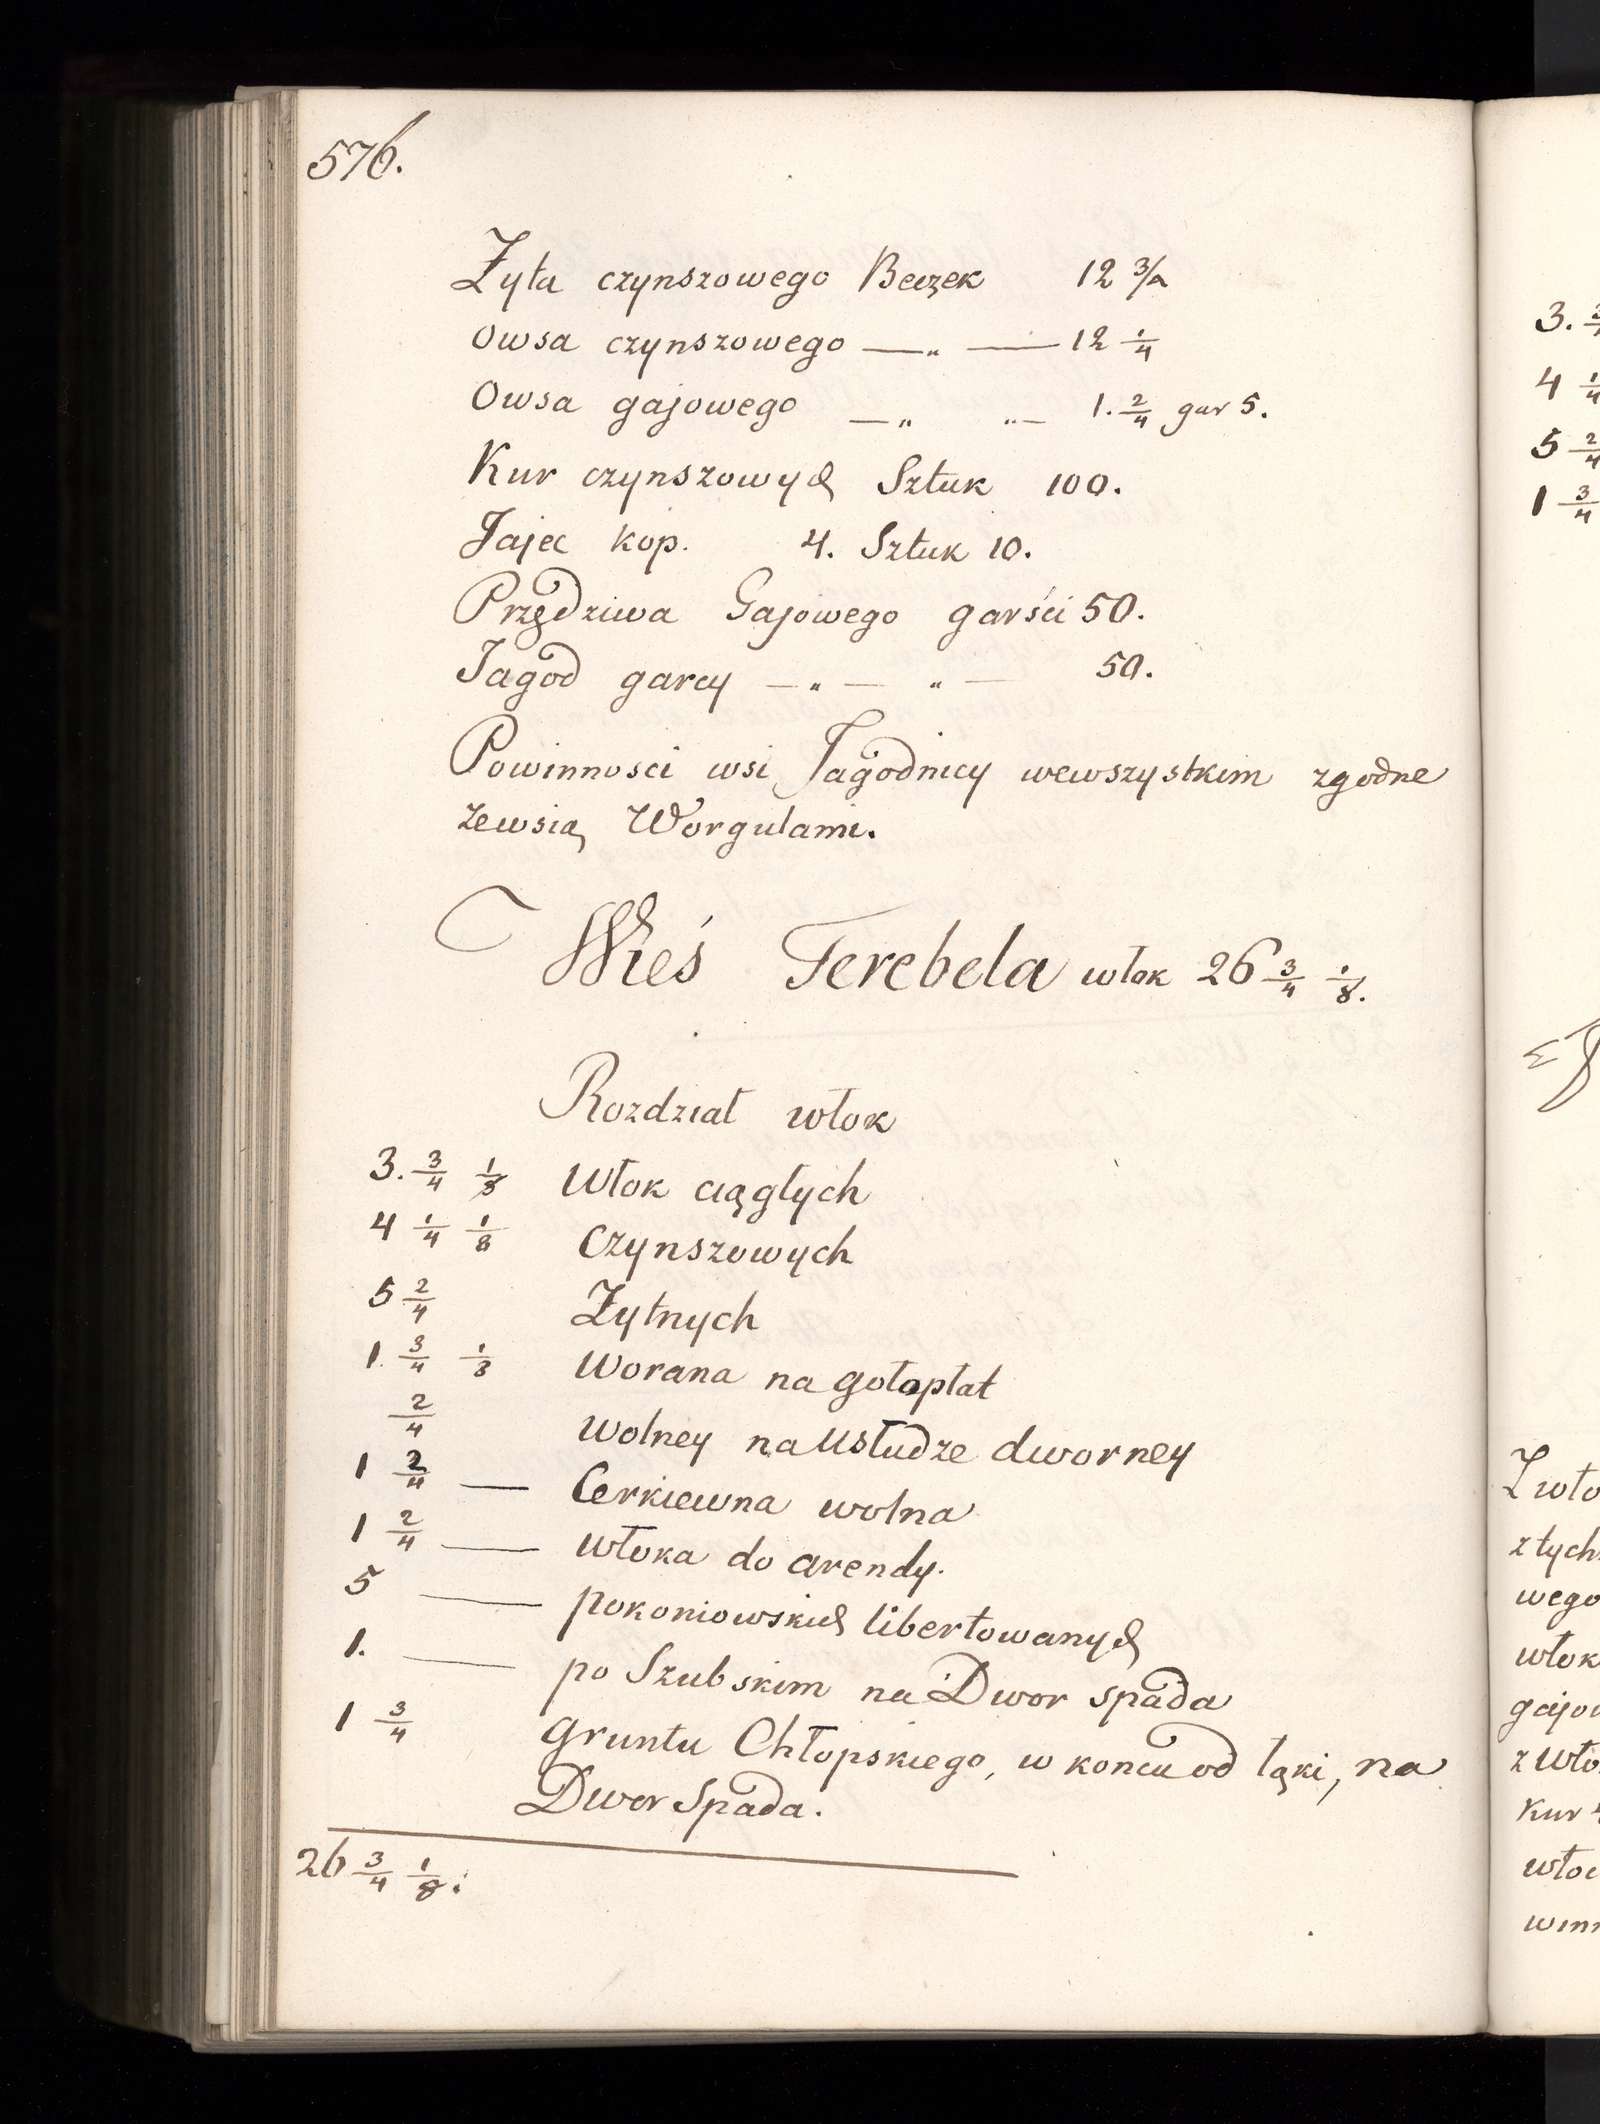 576.
Żyta czynszowego Beczek 12 3/4
Owsa czynszowego —„ — 12 1/4
Owsa gajowego —„ „— 1. 2/4 gar 5.
Kur czynszowych Sztuk 100.
Jajec kop. 4. Sztuk 10.
Przędziwa Gajowego garści 50.
Jagod garcy —„— „— 50.
Powinnosci wsi Jagodnicy wewszystkim zgodne
zewsią Worgulami.
Wieś Terebela włok 26 3/4 1/8.
Rozdział włok
3. 3/4 1/8 Włok ciągłych
4 1/4 1/8 Czynszowych
5 2/4 Żytnych
1. 3/4 1/8 Worana na gołopłat
2/4 wolney na usłudze dworney
1 2/4 — Cerkiewna wolna
1 2/4 — włoka do arendy.
5 — pokoniowskich libertowanych
1. — po Szubskim na Dwor spada
1 3/4 gruntu Chłopskiego, w koncu od łąki, na
Dwor Spada.
26 3/4 1/8.
3.
4 1/4
5 2/4
1 3/4
z tych
wego
włok
kur